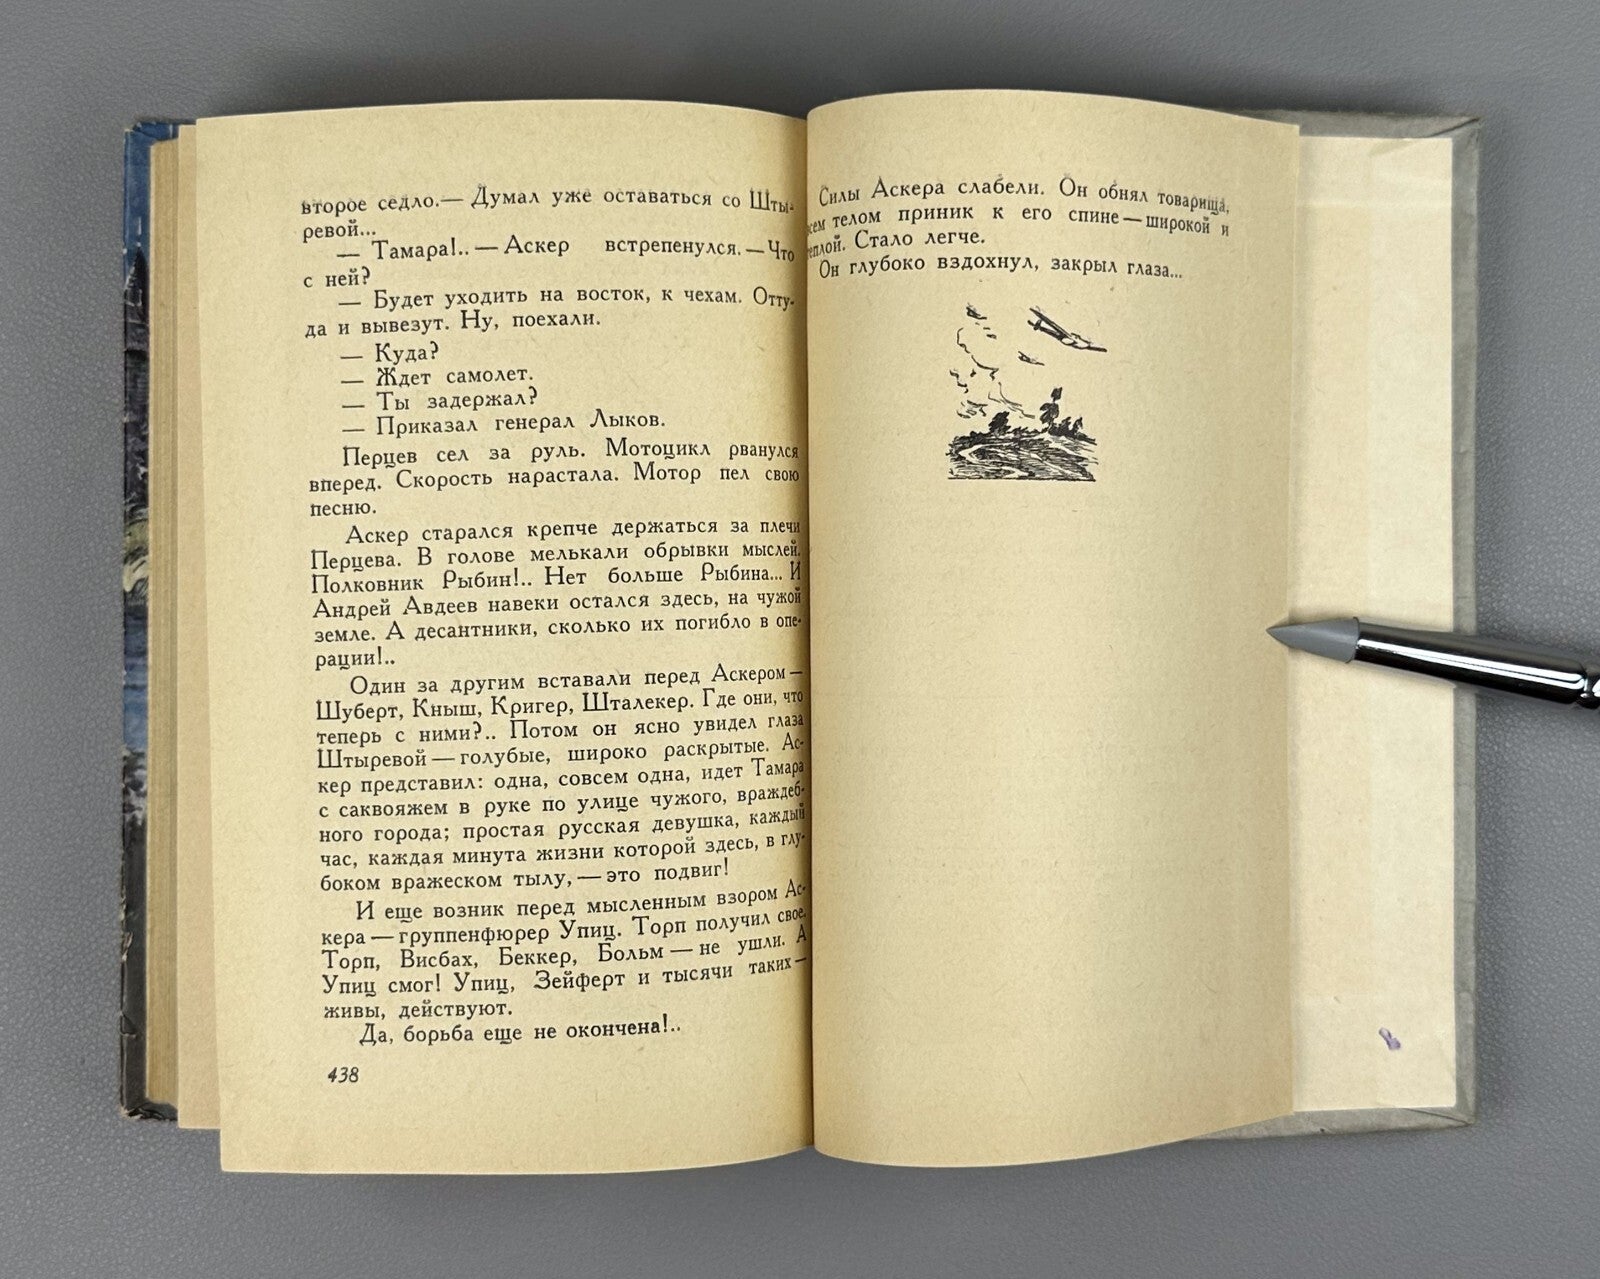 второе седло.— Думал уже оставаться со Шты-
ревой...
— Тамара!.. — Аскер встрепенулся. — Что
с ней?
— Будет уходить на восток, к чехам. Отту-
да и вывезут. Ну, поехали.
— Куда?
— Ждет самолет.
— Ты задержал?
— Приказал генерал Лыков.
Перцев сел за руль. Мотоцикл рванулся
вперед. Скорость нарастала. Мотор пел свою
песню.
Аскер старался крепче держаться за плечи
Перцева. В голове мелькали обрывки мыслей.
Полковник Рыбин!.. Нет больше Рыбина... И
Андрей Авдеев навеки остался здесь, на чужой
земле. А десантники, сколько их погибло в опе-
рации!..
Один за другим вставали перед Аскером —
Шуберт, Кныш, Кригер, Шталекер. Где они, что
теперь с ними?.. Потом он ясно увидел глаза
Штыревой — голубые, широко раскрытые. Ас-
кер представил: одна, совсем одна, идет Тамара
с саквояжем в руке по улице чужого, враждеб-
ного города; простая русская девушка, каждый
час, каждая минута жизни которой здесь, в глу-
боком вражеском тылу, — это подвиг!
И еще возник перед мысленным взором Ас-
кера — группенфюрер Упиц. Торп получил свое.
Торп, Висбах, Беккер, Больм — не ушли. А
Упиц смог! Упиц, Зейферт и тысячи таких —
живы, действуют.
Да, борьба еще не окончена!..
438
Силы Аскера слабели. Он обнял товарища,
всем телом приник к его спине — широкой и
теплой. Стало легче.
Он глубоко вздохнул, закрыл глаза...